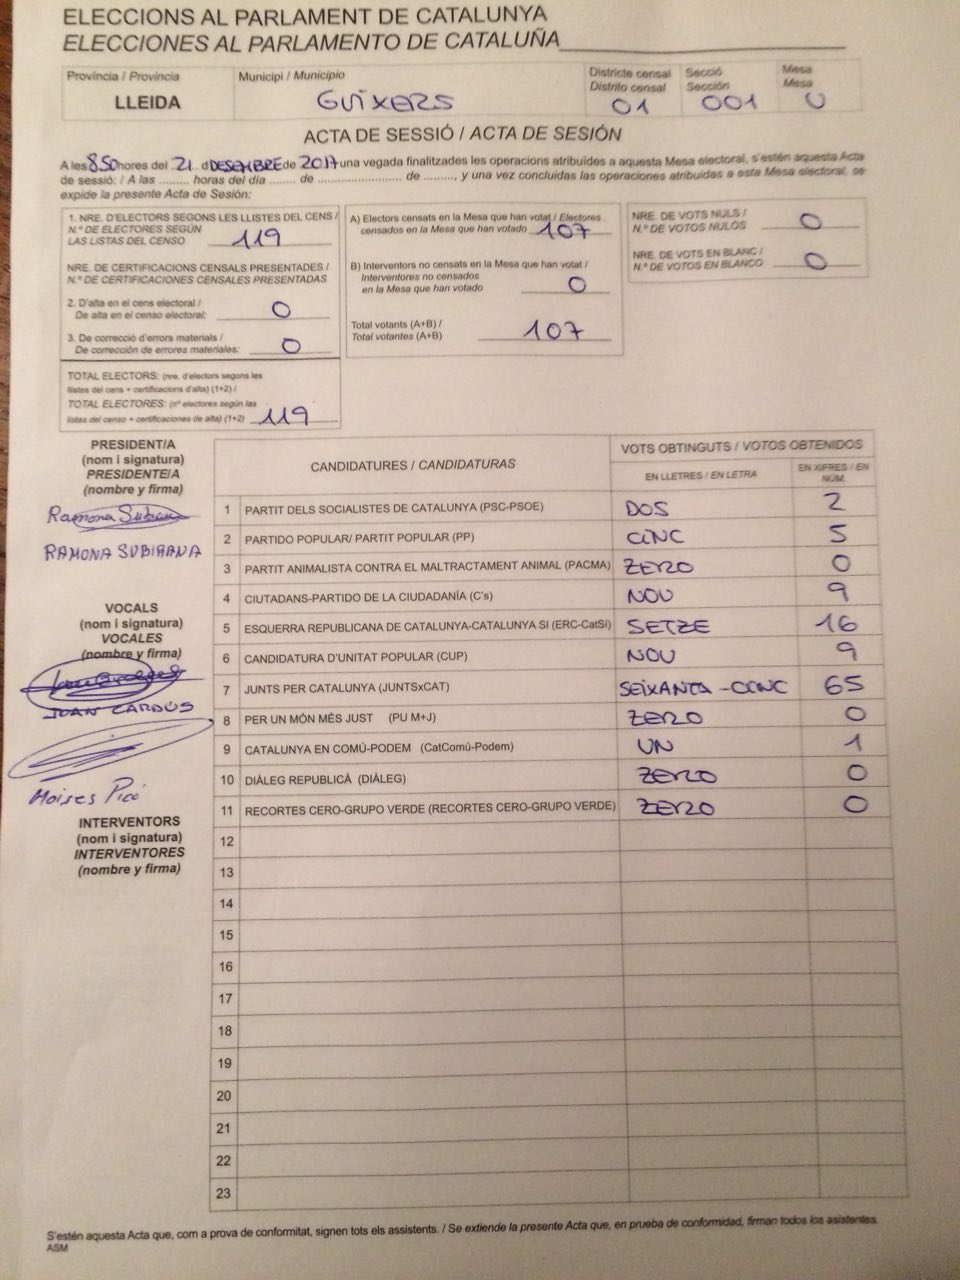 ELECCIONS AL PARLAMENT DE CATALUNYA
ELECCIONES AL PARLAMENTO DE CATALUÑA
Província / Provincia
LLEIDA
Municipi / Municipio
GUIXERS
Districte censal
Distrito censal
01
Secció
Sección
001
Mesa
Mesa
U
ACTA DE SESSIÓ / ACTA DE SESIÓN
A les 8.50 hores del 21. d DESEMBRE de 2017 una vegada finalitzades les operacions atribuïdes a aquesta Mesa electoral, s'estén aquesta Acta
de sessió: / A las ......... horas del día ........ de .......................... de ........, y una vez concluidas las operaciones atribuidas a esta Mesa electoral, se
expide la presente Acta de Sesión:
1. NRE. D'ELECTORS SEGONS LES LLISTES DEL CENS /
N.º DE ELECTORES SEGÚN
LAS LISTAS DEL CENSO 119
NRE. DE CERTIFICACIONS CENSALS PRESENTADES /
N.º DE CERTIFICACIONES CENSALES PRESENTADAS
2. D'alta en el cens electoral /
De alta en el censo electoral: 0
3. De correcció d'errors materials /
De corrección de errores materiales: 0
TOTAL ELECTORS: (nre. d'electors segons les
llistes del cens + certificacions d'alta) (1+2) /
TOTAL ELECTORES: (nº electores según las
listas del censo + certificaciones de alta) (1+2) 119
A) Electors censats en la Mesa que han votat / Electores
censados en la Mesa que han votado 107
B) Interventors no censats en la Mesa que han votat /
Interventores no censados
en la Mesa que han votado 0
Total votants (A+B) /
Total votantes (A+B) 107
NRE. DE VOTS NULS /
N.º DE VOTOS NULOS 0
NRE. DE VOTS EN BLANC /
N.º DE VOTOS EN BLANCO 0
PRESIDENT/A
(nom i signatura)
PRESIDENTE/A
(nombre y firma)
Ramona Subirana
RAMONA SUBIRANA
VOCALS
(nom i signatura)
VOCALES
(nombre y firma)
JOAN CARDÚS
Moises Picó
INTERVENTORS
(nom i signatura)
INTERVENTORES
(nombre y firma)
CANDIDATURES / CANDIDATURAS
VOTS OBTINGUTS / VOTOS OBTENIDOS
EN LLETRES / EN LETRA
EN XIFRES / EN
NÚM.
1 PARTIT DELS SOCIALISTES DE CATALUNYA (PSC-PSOE) DOS 2
2 PARTIDO POPULAR/ PARTIT POPULAR (PP) CINC 5
3 PARTIT ANIMALISTA CONTRA EL MALTRACTAMENT ANIMAL (PACMA) ZERO 0
4 CIUTADANS-PARTIDO DE LA CIUDADANÍA (C's) NOU 9
5 ESQUERRA REPUBLICANA DE CATALUNYA-CATALUNYA SÍ (ERC-CatSí) SETZE 16
6 CANDIDATURA D'UNITAT POPULAR (CUP) NOU 9
7 JUNTS PER CATALUNYA (JUNTSxCAT) SEIXANTA-CINC 65
8 PER UN MÓN MÉS JUST (PU M+J) ZERO 0
9 CATALUNYA EN COMÚ-PODEM (CatComú-Podem) UN 1
10 DIÀLEG REPUBLICÀ (DIÀLEG) ZERO 0
11 RECORTES CERO-GRUPO VERDE (RECORTES CERO-GRUPO VERDE) ZERO 0
12
13
14
15
16
17
18
19
20
21
22
23
S'estén aquesta Acta que, com a prova de conformitat, signen tots els assistents. / Se extiende la presente Acta que, en prueba de conformidad, firman todos los asistentes.
ASM